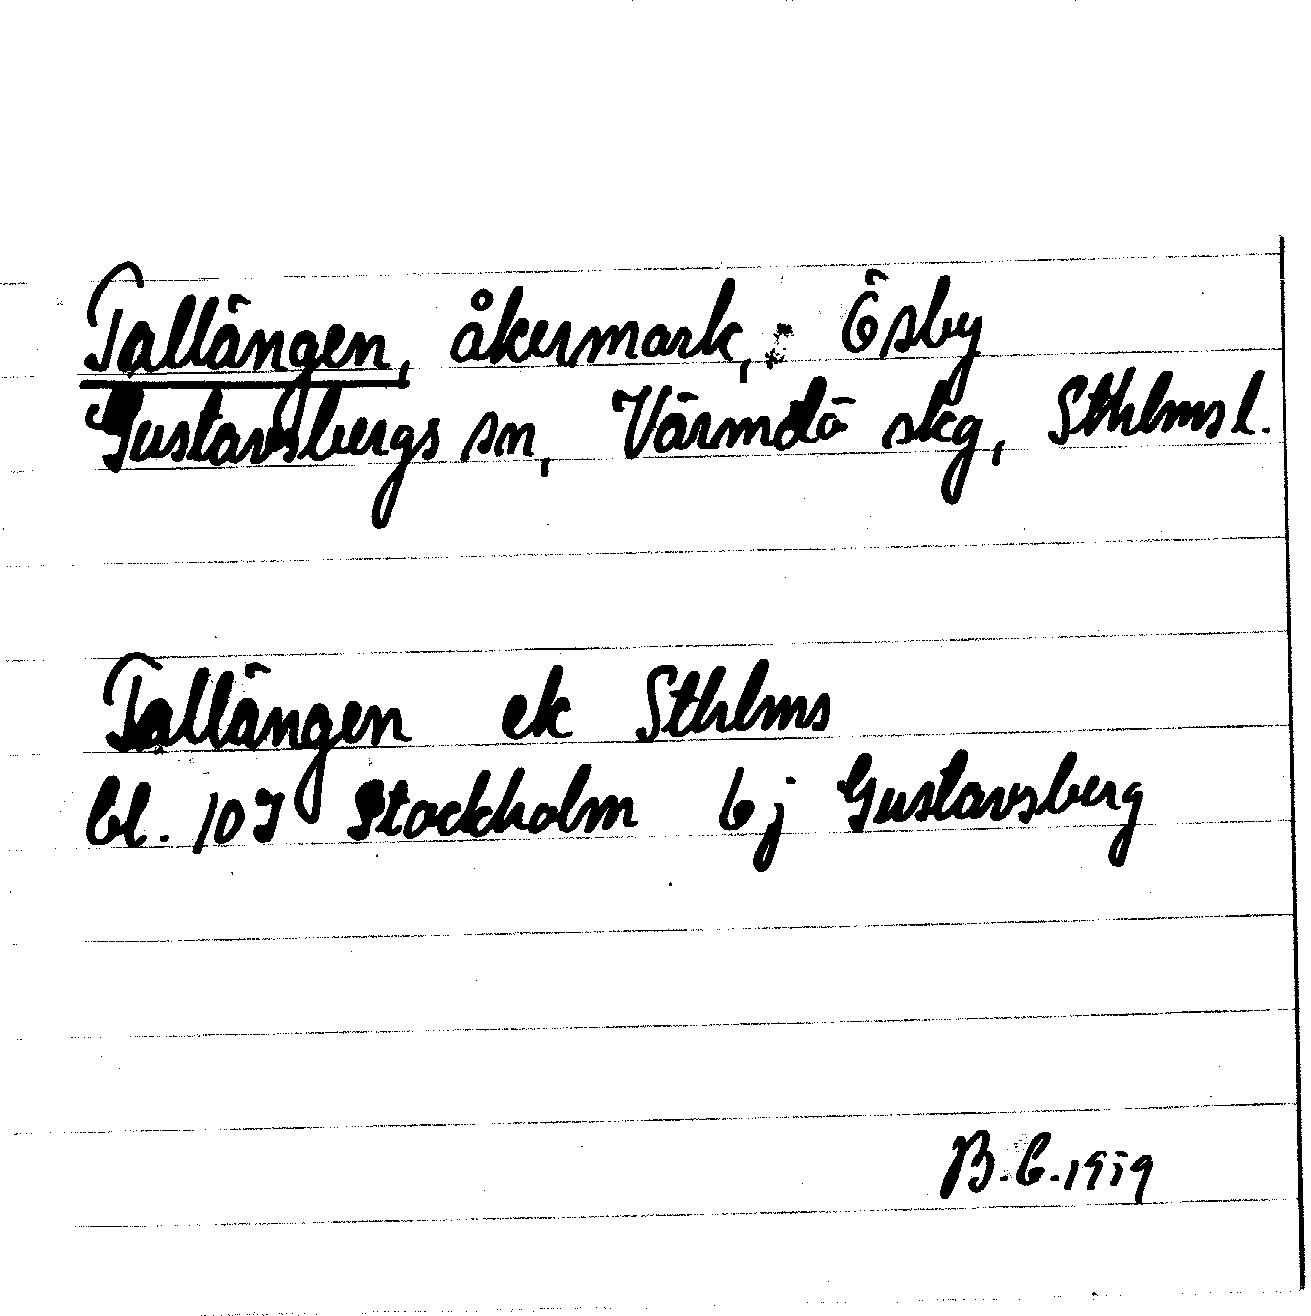 Tallängen, åkermark, Ösby
Gustavsbergs sn, Värmdö skg, Sthlms l.
Tallängen ek Sthlms
bl. 10I Stockholm 6j Gustavsberg